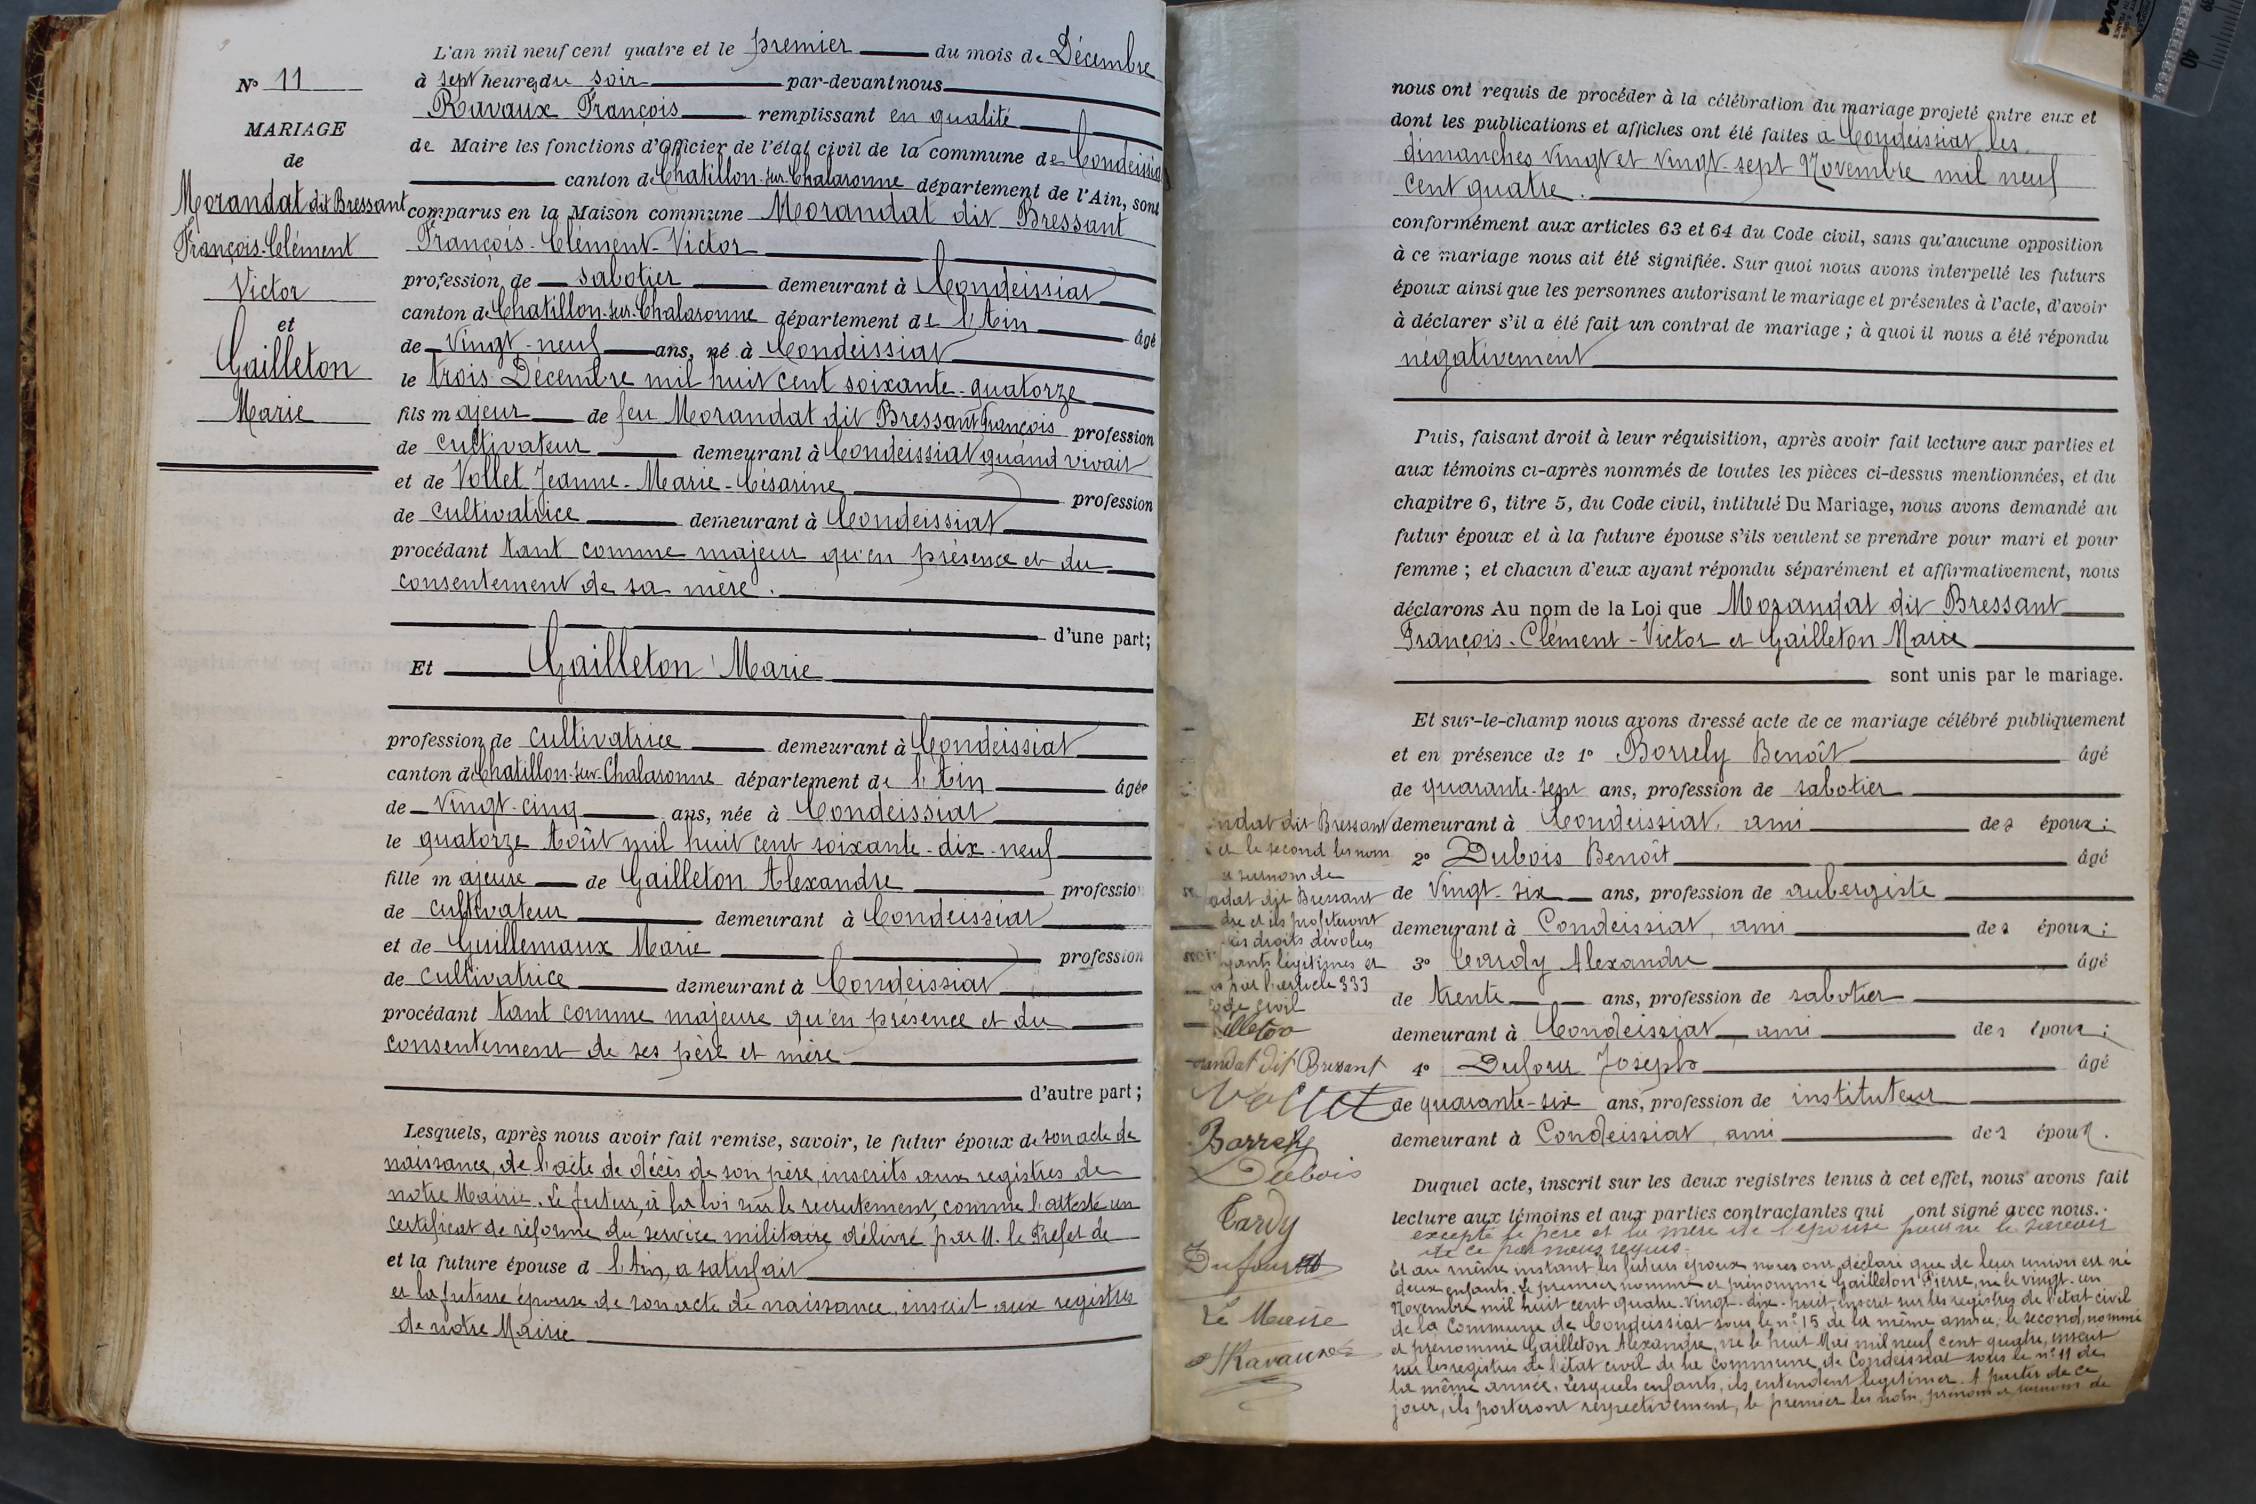 N° 11
MARIAGE
de
Morandat dit Bressant
François-Clément
Victor
et
Gailleton
Marie
L'an mil neuf cent quatre et le premier du mois de Décembre
à sept heures du soir par-devant nous
Ravaux François remplissant en qualité
de Maire les fonctions d'Officier de l'état civil de la commune de Condeissiat
canton de Chatillon-sur-Chalaronne département de l'Ain, sont
comparus en la Maison commune Morandat dit Bressant
François-Clément-Victor
profession de sabotier demeurant à Condeissiat
canton de Chatillon-sur-Chalaronne département de l'Ain âgé
de vingt-neuf ans, né à Condeissiat
le trois Décembre mil huit cent soixante-quatorze
fils majeur de feu Morandat dit Bressant François profession
de cultivateur demeurant à Condeissiat quand vivait
et de Vollet Jeanne-Marie-Césarine profession
de cultivatrice demeurant à Condeissiat
procédant tant comme majeur qu'en présence et du
consentement de sa mère.
d'une part;
Et Gailleton Marie
profession de cultivatrice demeurant à Condeissiat
canton de Chatillon-sur-Chalaronne département de l'Ain âgée
de vingt-cinq ans, née à Condeissiat
le quatorze Août mil huit cent soixante-dix-neuf
fille majeure de Gailleton Alexandre profession
de cultivateur demeurant à Condeissiat
et de Guillemaux Marie profession
de cultivatrice demeurant à Condeissiat
procédant tant comme majeure qu'en présence et du
consentement de ses père et mère
d'autre part;
Lesquels, après nous avoir fait remise, savoir, le futur époux de son acte de
naissance, de l'acte de décès de son père, inscrits aux registres de
notre Mairie. Le futur, à la loi sur le recrutement, comme l'atteste un
certificat de réforme du service militaire délivré par M. le Préfet de
et la future épouse d l'Ain, a satisfait
et la future épouse de son acte de naissance, inscrit aux registres
de notre Mairie
nous ont requis de procéder à la célébration du mariage projeté entre eux et
dont les publications et affiches ont été faites à Condeissiat les
dimanches vingt et vingt-sept Novembre mil neuf
cent quatre.
conformément aux articles 63 et 64 du Code civil, sans qu'aucune opposition
à ce mariage nous ait été signifiée. Sur quoi nous avons interpellé les futurs
époux ainsi que les personnes autorisant le mariage et présentes à l'acte, d'avoir
à déclarer s'il a été fait un contrat de mariage ; à quoi il nous a été répondu
négativement
Puis, faisant droit à leur réquisition, après avoir fait lecture aux parties et
aux témoins ci-après nommés de toutes les pièces ci-dessus mentionnées, et du
chapitre 6, titre 5, du Code civil, intitulé Du Mariage, nous avons demandé au
futur époux et à la future épouse s'ils veulent se prendre pour mari et pour
femme ; et chacun d'eux ayant répondu séparément et affirmativement, nous
déclarons Au nom de la Loi que Morandat dit Bressant
François-Clément-Victor et Gailleton Marie
sont unis par le mariage.
Et sur-le-champ nous avons dressé acte de ce mariage célébré publiquement
et en présence de 1° Borrely Benoît âgé
de quarante-sept ans, profession de sabotier
demeurant à Condeissiat, ami des époux;
2° Dubois Benoît âgé
de vingt-six ans, profession de aubergiste
demeurant à Condeissiat, ami des époux;
3° Tardy Alexandre âgé
de trente ans, profession de sabotier
demeurant à Condeissiat, ami des époux;
4° Dufour Joseph âgé
de quarante-six ans, profession de instituteur
demeurant à Condeissiat, ami des époux.
Duquel acte, inscrit sur les deux registres tenus à cet effet, nous avons fait
lecture aux témoins et aux parties contractantes qui ont signé avec nous.
excepté le père et la mère de l'épouse pour ne le savoir
de ce par nous requis.
Et au même instant les futurs époux nous ont déclaré que de leur union est né
deux enfants. Le premier nommé et prénommé Gailleton Pierre, né le vingt-un
Novembre mil huit cent quatre-vingt-dix-huit, inscrit sur les registres de l'état civil
de la Commune de Condeissiat sous le n° 15 de la même année, le second, nommé
et prénommé Gailleton Alexandre, né le huit Mai mil neuf cent quatre, inscrit
sur les registres de l'état civil de la Commune de Condeissiat sous le n° 11 de
la même année. Lesquels enfants, ils entendent légitimer. A partir de ce
jour, ils porteront respectivement, le premier les nom, prénom et surnom de
ndat dit Bressant
et le second les nom
et surnom de
ndat dit Bressant
dre et ils profiteront
es droits dévolus
fants légitimes et
s par l'article 333
ode civil
illeton
randat dit Bressant
Vollet
Borrely
Dubois
Tardy
Dufour
Le Maire
Ravaux